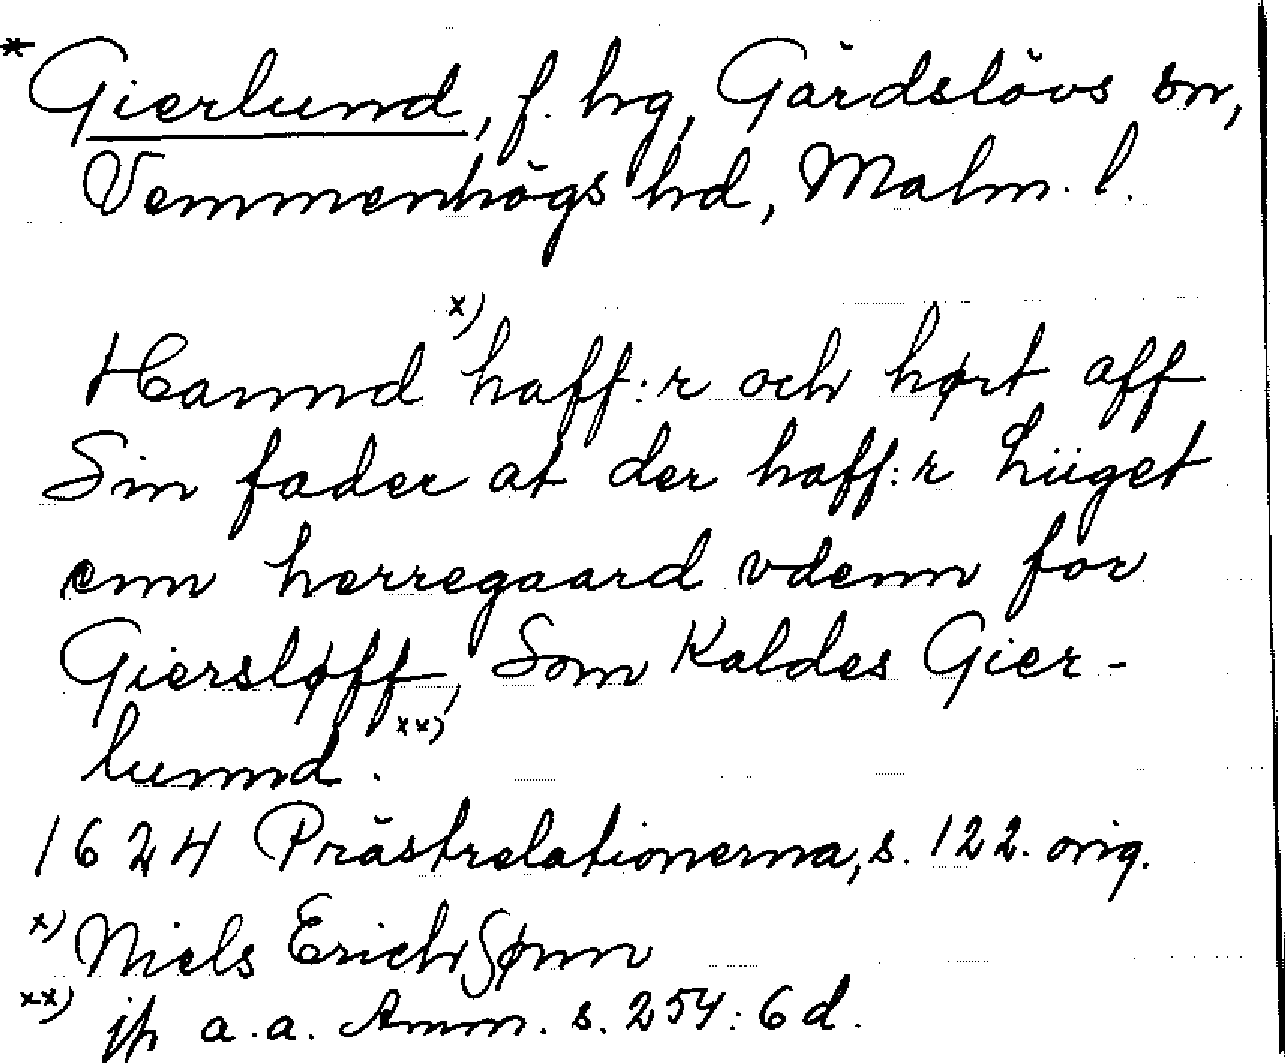 * Gierlund, f. hg, Gärdslövs sn,
Vemmenhögs hd, Malm. l.
Hannd x) haff:r och hørt aff
Sin fader at der haff:r Liiget
enn herregaard vdenn for
Giersløff, Som Kaldes Gier-
lunnd. xx)
1624 Prästrelationerna, s. 122. orig.
x) Niels Erich Sønn
xx) jfr a.a. Anm. s. 254: 6 d.